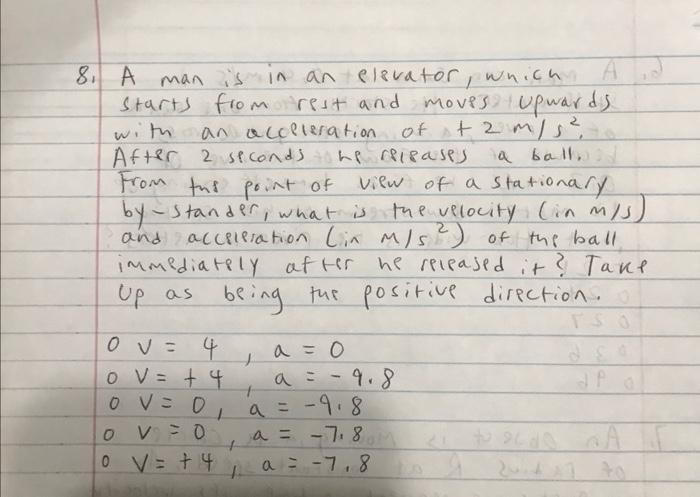 8. A man is in an elevator, which
starts from rest and moves upwards
with an acceleration of + 2 m/s².
After 2 seconds he releases a ball.
From the point of view of a stationary
by-stander, what is the velocity (in m/s)
and acceleration (in m/s²) of the ball
immediately after he released it? Take
up as being the positive direction.
o V = 4, a = 0
o V = + 4, a = - 9.8
o V = 0, a = -9.8
o V = 0, a = -7.8
o V = +4, a = -7.8